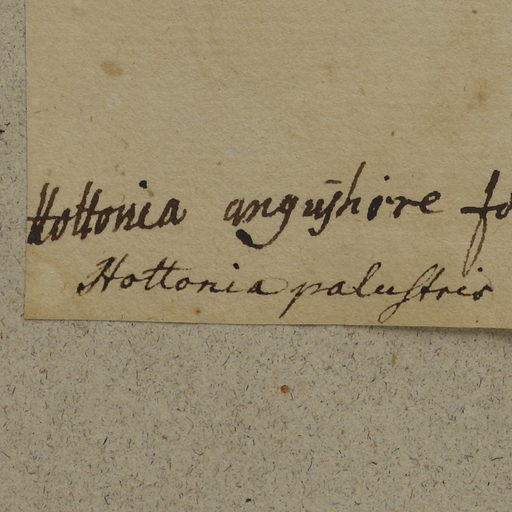 Hottonia angushire fo
Hottonia palustris